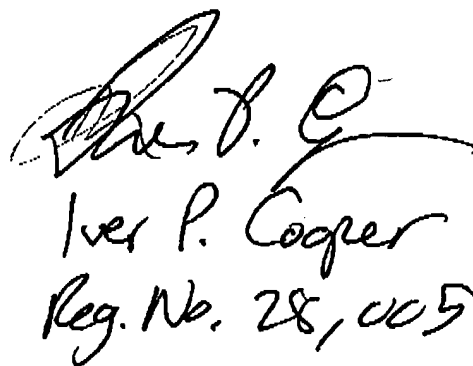 Iver P. Cooper
Reg. No. 28,005